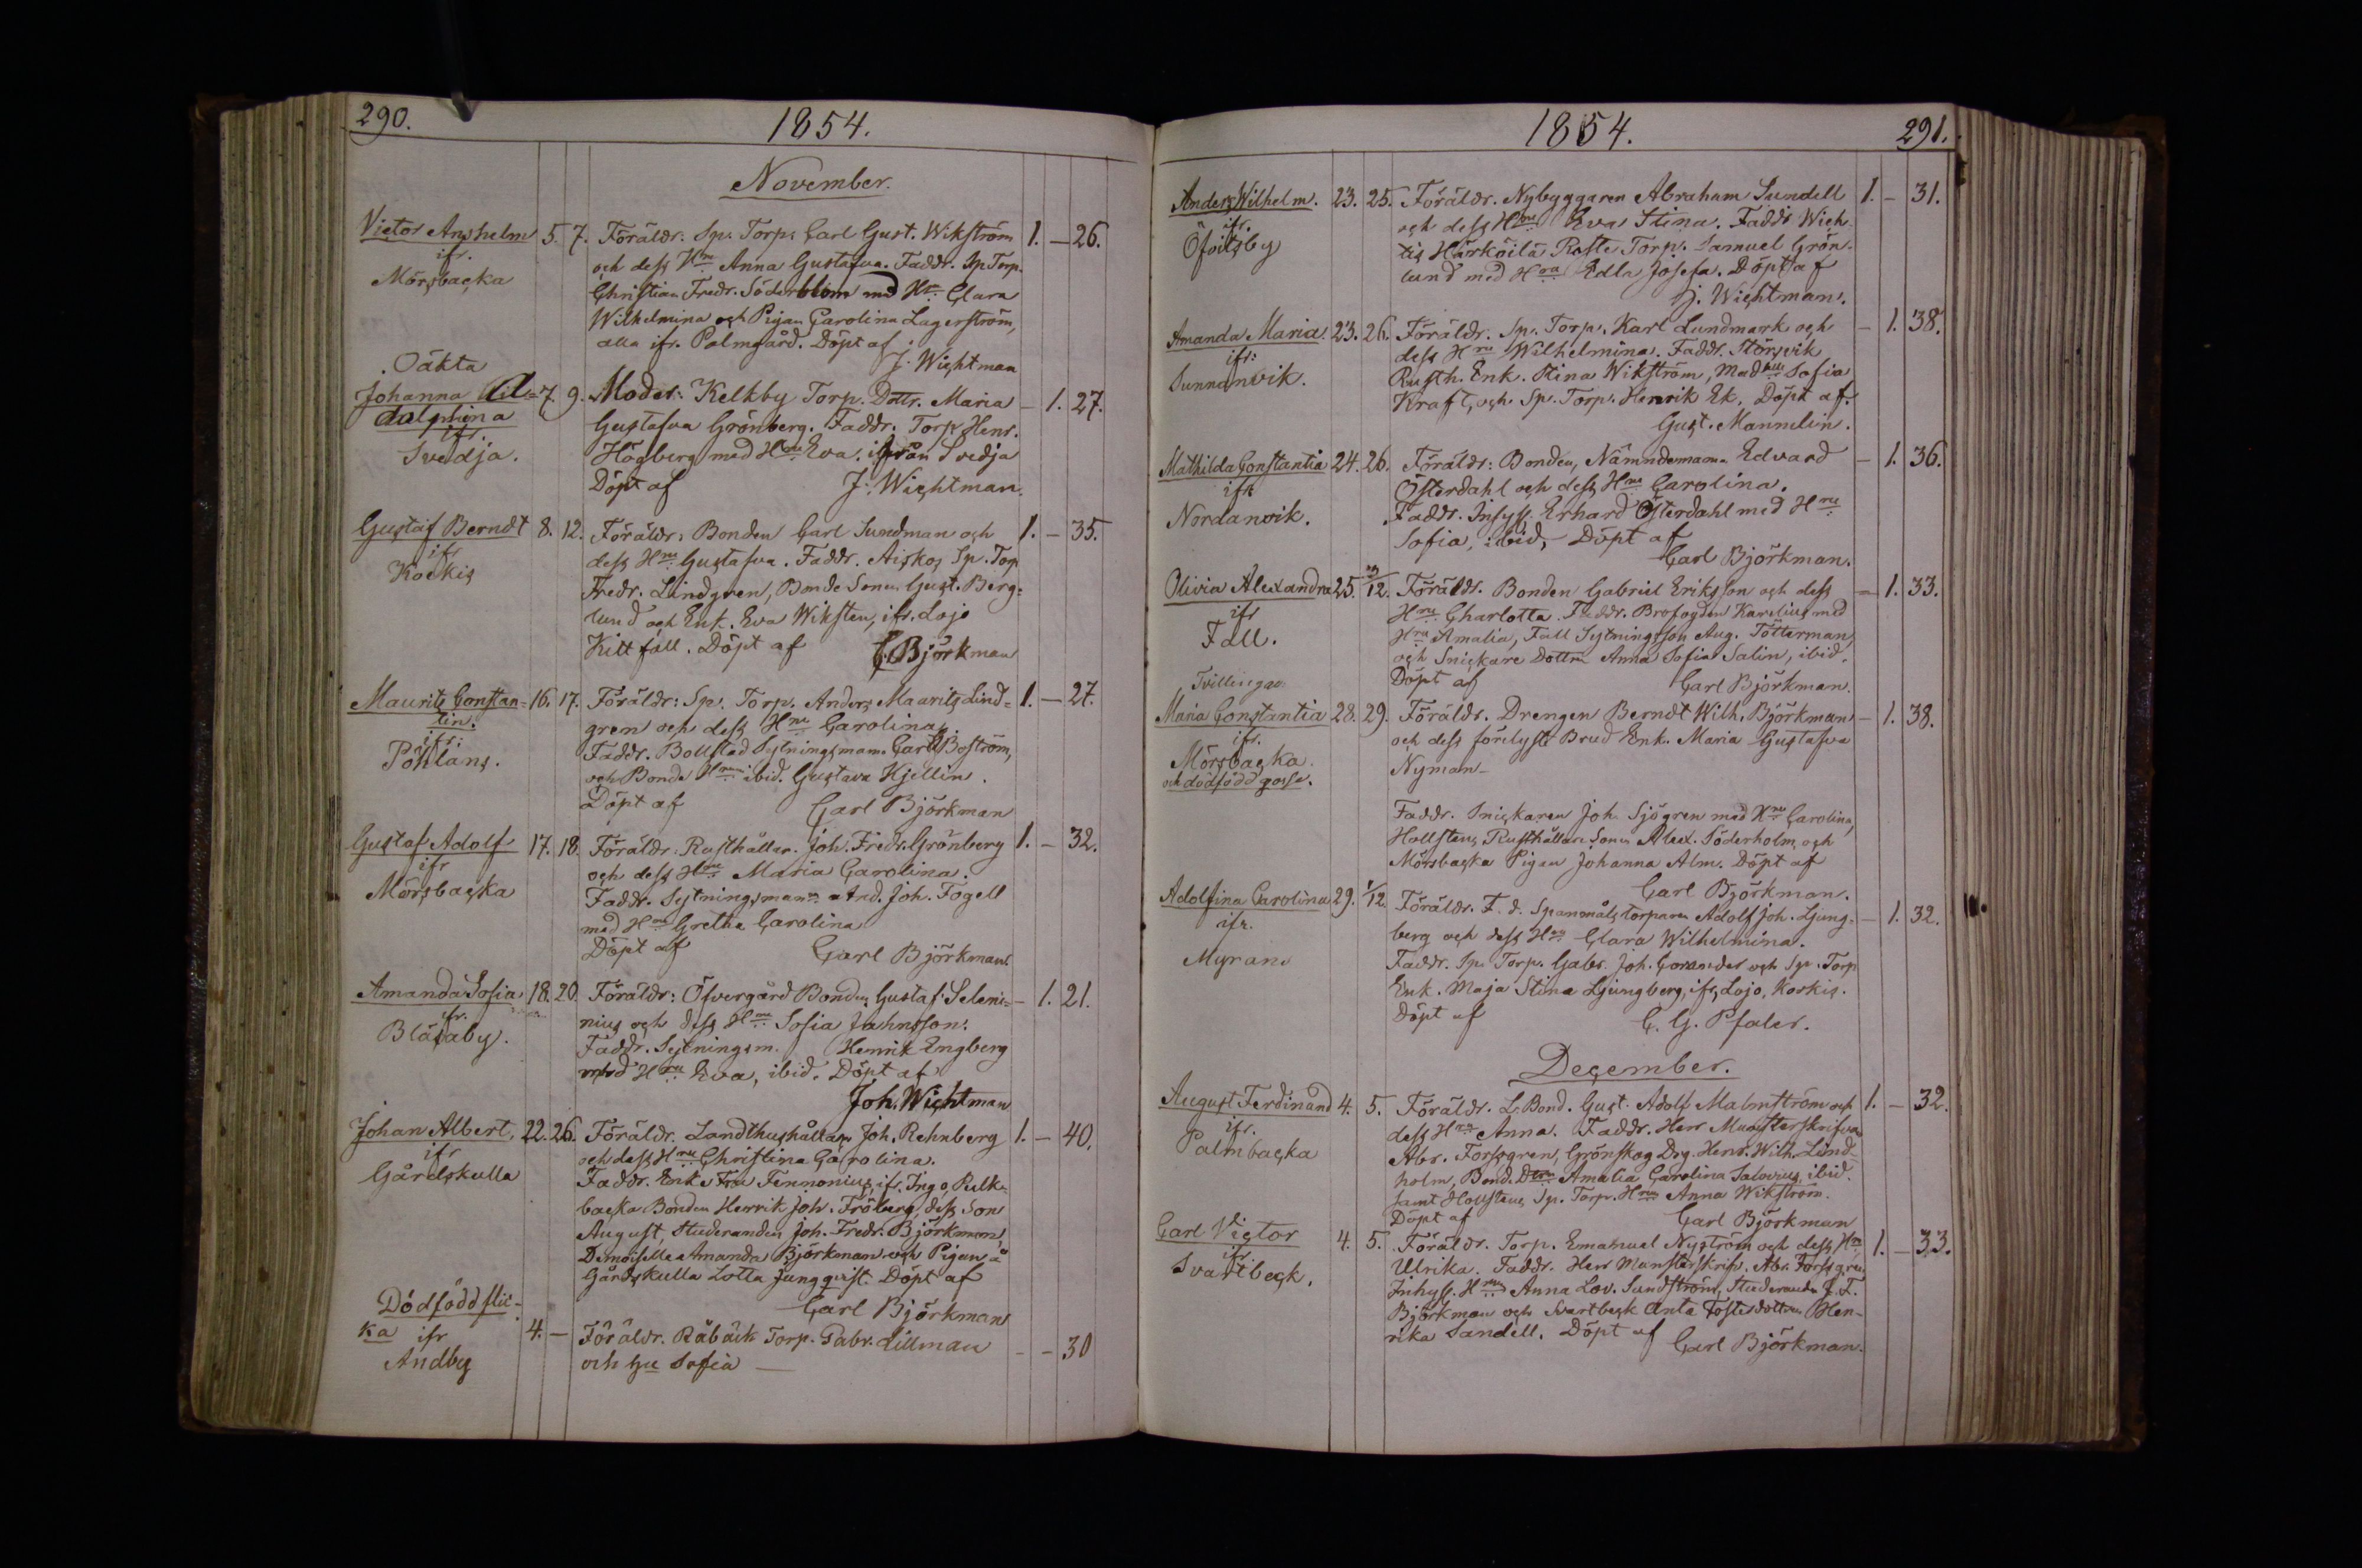 290.
1854.
November.
Victor Anshelm 5. 7. Föräldr: Sp. Torp. Carl Gust. Wikström 1. — 26.
ifr. och dess Hru Anna Gustafva. Faddr. Sp Torp.
Mörsbacka Christian Fredr. Söderblom med Hru Clara
Wilhelmina och Pigan Carolina Lagerström,
alla ifr. Palmgård. Döpt af
J. Wichtman
Oäkta
Johanna Al= 7. 9. Moder: Kelkby Torp. Dottr. Maria — 1. 27.
dalphina Gustafva Grönberg. Faddr. Torp Henr.
ifr. Högberg med Hru Eva. ifrån Svedja
Svedja. Döpt af J. Wichtman.
Gustaf Berndt 8. 12. Föräldr: Bonden Carl Sundman och 1. — 35.
ifr dess Hru Gustafva. Faddr. Sp. Torp
Koskis Fredr. Lindgren, Bonde Sonen Gust. Berg=
lund och Enk. Eva Wiksten, ifr. Lojo
Kittfall. Döpt af C. Björkman
Maurits Constan= 16. 17. Föräldr: Sp. Torp. Anders Maurits Lind= 1. — 27.
tin. gren och dess Hru Carolina.
ifr: Faddr. Bollstad Sytningsman Carl Boström,
Pöhlans. och Bonde Hrun ibid. Gustava Hjellin.
Döpt af Carl Björkman
Gustaf Adolf 17. 18. Föräldr: Rusthållar. Joh. Fredr. Grönberg 1. — 32.
ifr och dess Hru Maria Carolina.
Mörsbacka Faddr. Sytningsman And. Joh. Fogell
med Hru Gretha Carolina
Döpt af Carl Björkman
Amanda Sofia 18. 20. Föräldr: Öfvergård Bonden Gustaf Seleni= — 1. 21.
ifr. nius och dess Hru Sofia Jahnsson.
Bläsaby. Faddr. Sytningsm. Henrik Engberg
med Hru Eva, ibid. Döpt af
Joh. Wichtman
Johan Albert, 22. 26. Föräldr. Landthushållare Joh. Rehnberg 1. — 40.
ifr och dess Hru Christina Carolina.
Gårdskulla Faddr. Enke Fru Fennonius, ifr. Ingo, Pulk=
backa Bonden Henrik Joh. Fröberg, dess Son
August, Studeranden Joh. Fredr. Björkman,
Demoiselle Amanda Björkman och Pigan å
Gårdskulla Lotta Jungqvist. Döpt af
Carl Björkman
Dödfödd flic-
ka ifr 4. — Föräldr. Råbäck Torp. Gabr. Lillman — — 30
Andby och Hu Sofia —
1854.
291.
Anders Wilhelm. 23. 25. Föräldr. Nybyggaren Abraham Sundell 1. — 31.
ifr. och dess Hru Eva Stina. Faddr Wich-
Öfvitsby tis Härköilä Raste Torp. Samuel Grön-
lund med Hru Edla Josefa. Döpt af
J. Wichtman.
Amanda Maria. 23. 26. Föräldr. Sp. Torp. Karl Lundmark och — 1. 38.
ifr: dess Hru Wilhelmina. Faddr. Störsvik
Sunnanvik. Rusth. Enk. Stina Wikström, Madlle Sofia
Kraft, och Sp. Torp. Henrik Ek. Döpt af.
Gust. Mannelin.
Mathilda Constantia 24. 26. Föräldr: Bonden, Nämndeman Edvard — 1. 36.
ifr Österdahl och dess Hru Carolina.
Nordanvik. Faddr. Inhys. Erhard Österdahl med Hru
Sofia, ibid, Döpt af
Carl Björkman.
Olivia Alexandra 25. 3/12. Föräldr. Bonden Gabriel Eriksson och dess — 1. 33.
ifr Hru Charlotta. Faddr. Brofogden Karelius med
Fall. Hru Amalia, Fall Sytningsson Aug. Tötterman,
och Snickare Dottren Anna Sofia Salin, ibid.
Döpt af Carl Björkman.
Tvillingar
Maria Constantia 28. 29. Föräldr. Drengen Berndt Wilh. Björkman — 1. 38.
ifr. och dess förelyste Brud Enk. Maria Gustafva
Mörsbacka Nyman—
och dödfödd gosse.
Faddr. Snickaren Joh. Sjögren med Hru Carolina,
Hollstens Rusthållare Sonen Alex. Söderholm och
Mörsbacka Pigan Johanna Alm. Döpt af
Carl Björkman.
Adolfina Carolina 29. 1/12. Föräldr. F. d. Spanmåls torparen Adolf Joh. Ljung- — 1. 32.
ifr. berg och dess Hru Clara Wilhelmina.
Myrans Faddr. Sp. Torp. Gabr. Joh. Gorander och Sp. Torp
Enk. Maja Stina Ljungberg, ifr. Lojo, Koskis.
Döpt af C. G. Pfaler.
December.
August Ferdinand 4. 5. Föräldr. L. Bond. Gust. Adolf Malmström och 1. — 32.
ifr. dess Hru Anna. Faddr. Herr Munsterskrifvar
Palmbacka Abr. Forssgren, Grönskog Drg. Henr. Wilh. Lind-
holm, Bond. Dottren Amalia Carolina Salovius, ibid.
samt Hollstens Sp. Torp. Hrun Anna Wikström.
Döpt af Carl Björkman
Carl Victor 4. 5. Föräldr. Torp. Emanuel Nyström och dess Hru 1. — 33.
ifr. Ulrika. Faddr. Herr Munsterskrif. Abr. Forssgren
Svartbeck. Inhys. Hrun Anna Lov. Sundström, Studeranden J. F.
Björkman och Svartbeck Anta Fosterdottren Hen-
rika Sandell. Döpt af Carl Björkman.